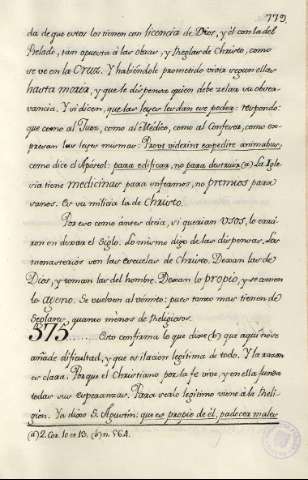 779
da de que estos los tienen con licencia de Dios, y él con la del
Prelado, tan opuesta á las obras, y Reglas de Christo, como
se ve en la Cruz. Y habiéndole prometido vivir segun ellas
hasta morir, y que le dispense quien debe zelar su obser-
vancia. Y si dicen, que las leyes les dan ese poder: respondo:
que como al Juez, como al Médico, como al Confesor, como ex-
presan las leyes mismas: Prout viderint expedire animabus;
como dice el Apóstol: para edificar, no para destruir (a) La Igle
sia tiene medicinas para enfermos, no premios para
vanos. Es su milicia la de Christo.
Por eso como ántes decia, si querian usos, lo errá-
ron en dexar el Siglo. Lo mismo digo de las dispensas. Los
monasterios son las Escuelas de Christo. Dexan las de
Dios, y toman las del hombre. Dexan lo propio, y se comen
lo ageno. Se vuelven al vómito; pues tanto mas tienen de
Seglares, quanto ménos de Religiosos.
575. Esto confirma lo que dixe (b) que aquí no se
añade dificultad, y que es ilacion legítima de todo. Y la razon
es clara. Porque el Christiano por la fe vive, y en ella funda
todas sus esperanzas. Para serlo legítimo viene á la Reli-
gion. Ya dixo S. Agustin: que es propio de él, padecer males
(a) 2. Cor. 10. et 13. (b) n. 564.